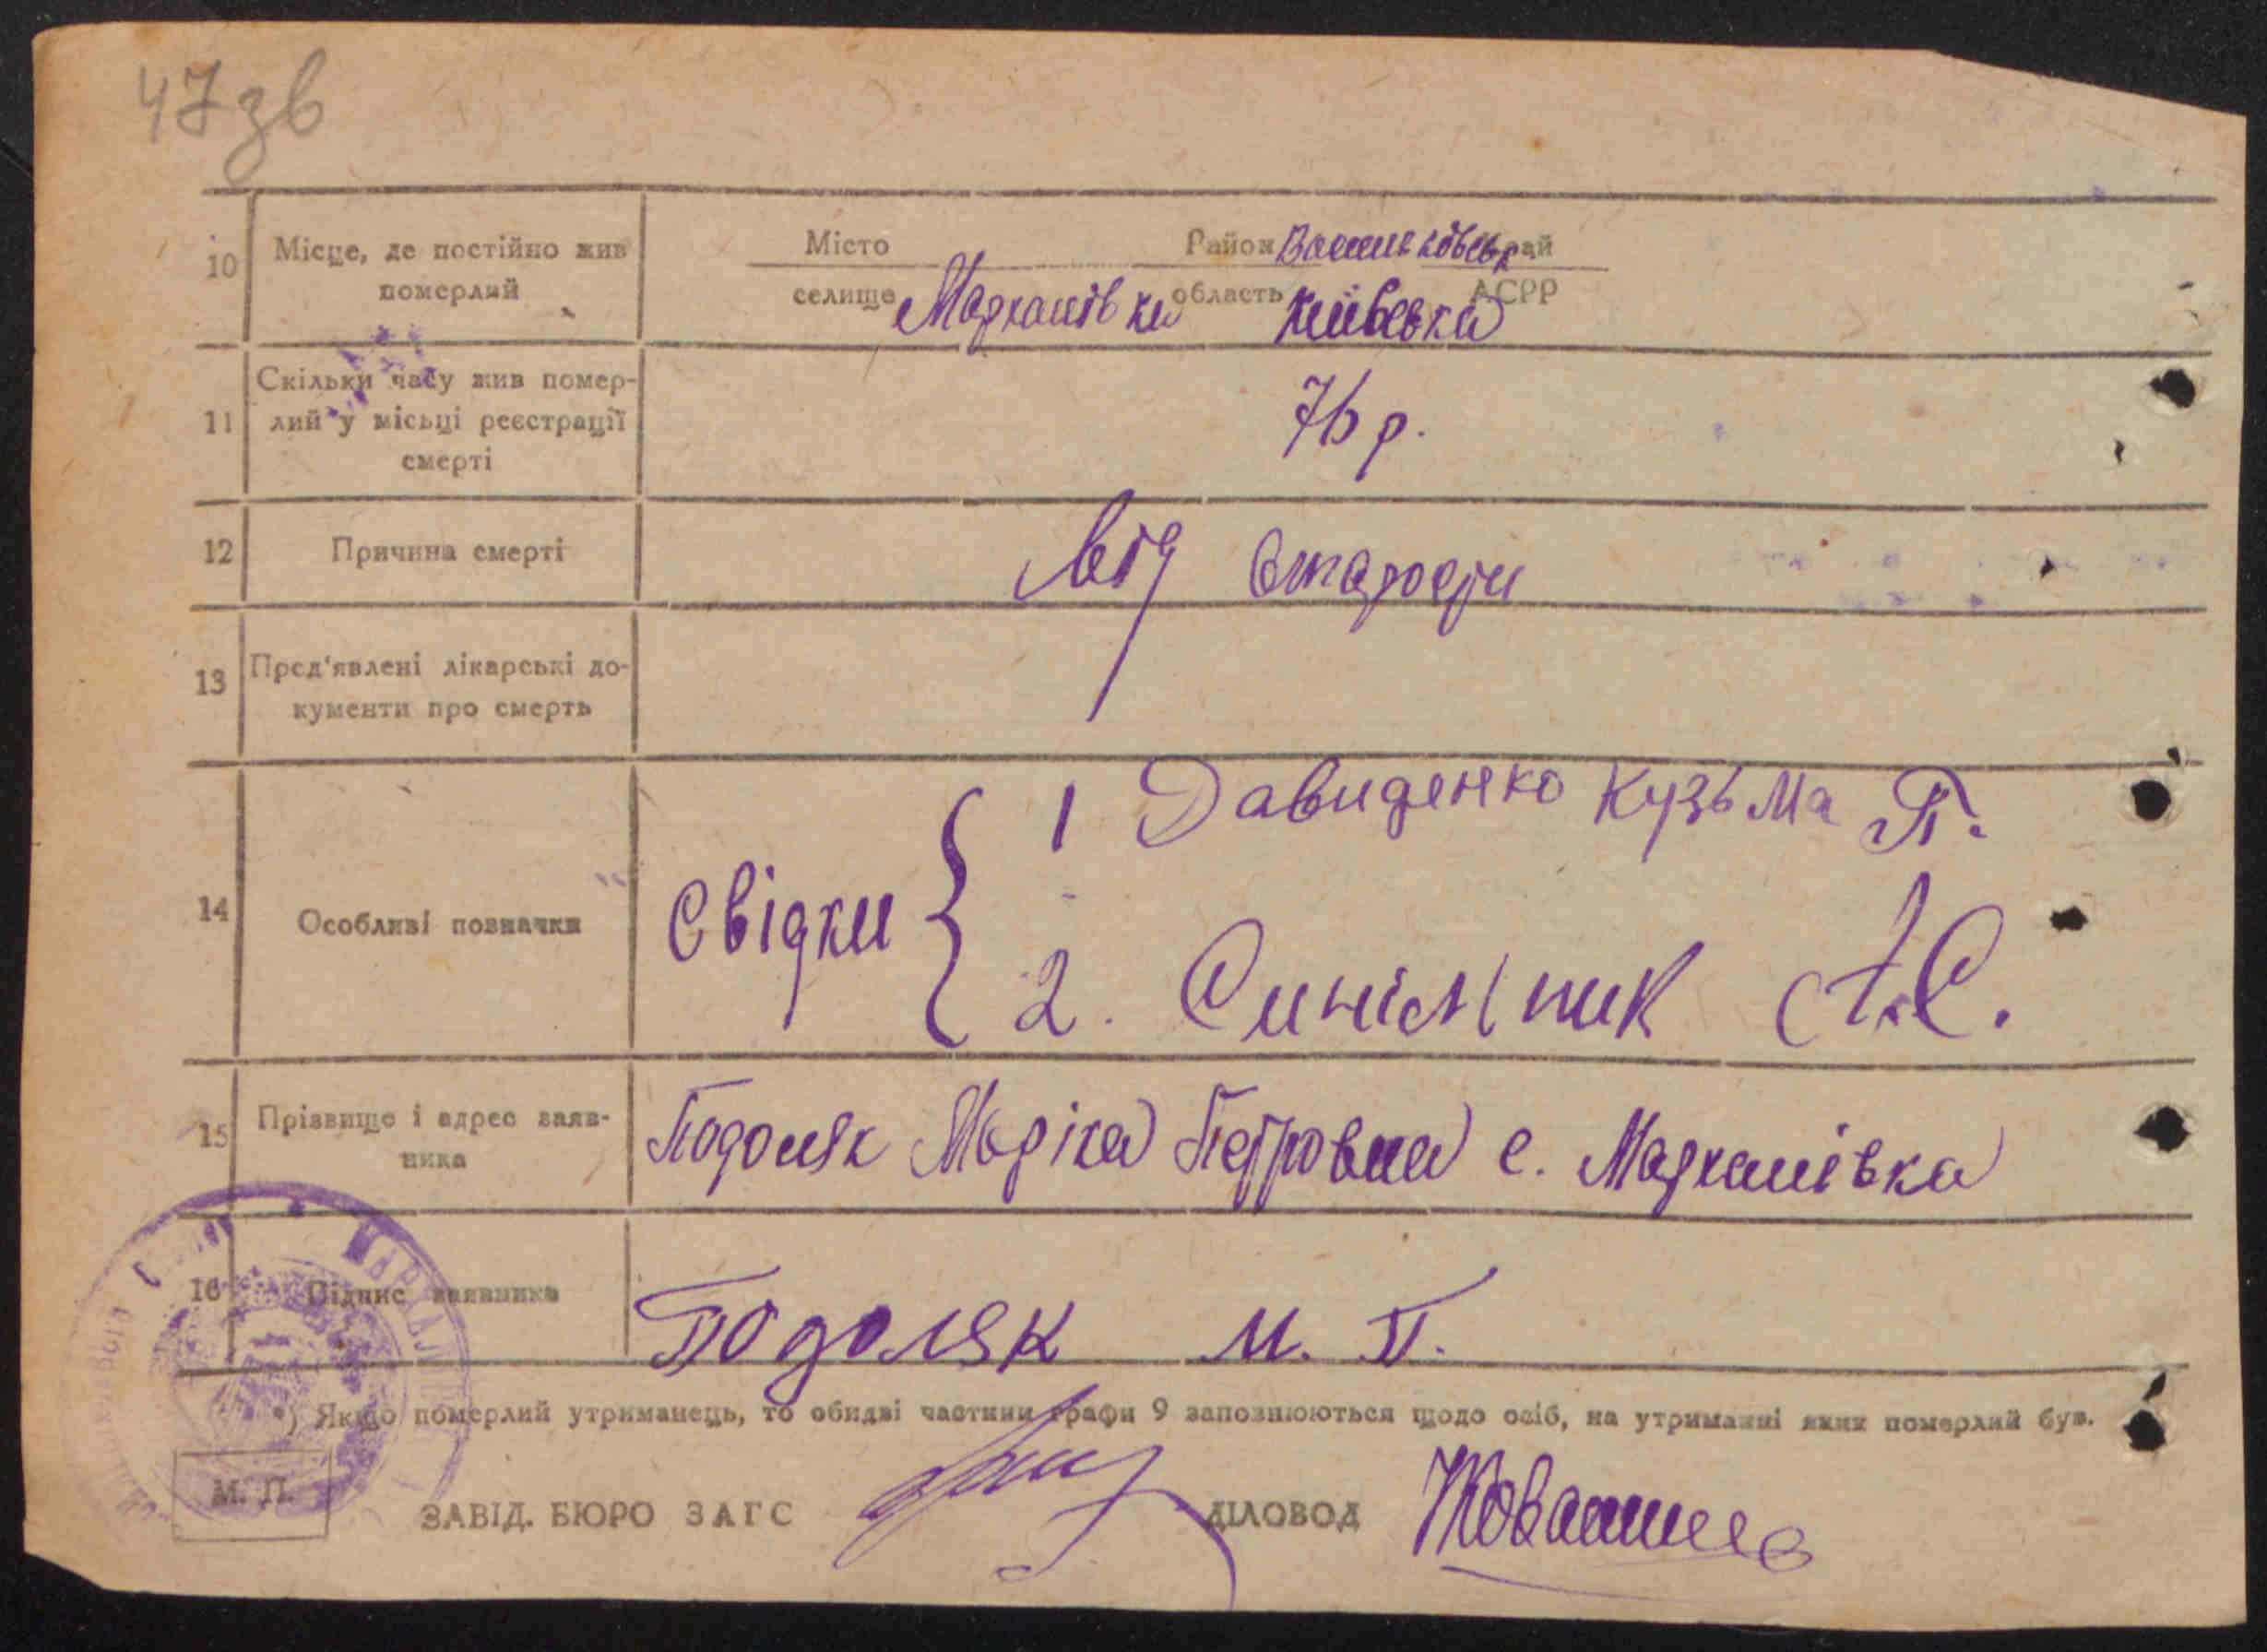 47зв
10 Місце, де постійно жив Місто Район Васильковськ край
померлий селище Мархалівка область Київська АСРР
11 Скільки часу жив помер-
лий у місьці реєстрації 76 р.
смерті
12 Причина смерті від старости
13 Пред'явлені лікарські до-
кументи про смерть
1 Давиденко Кузьма П.
14 Особливі позначки Свідки
2. Синільник А.С.
15 Прізвище і адрес заяв- Подоляк Маріка Петровна с. Мархалівка
ника
16 Підпис заявника Подоляк М. П.
*) Якщо померлий утриманець, то обидві частини графи 9 заповнюються щодо осіб, на утриманні яких померлий був.
М. П.
ЗАВІД. БЮРО ЗАГС ДІЛОВОД